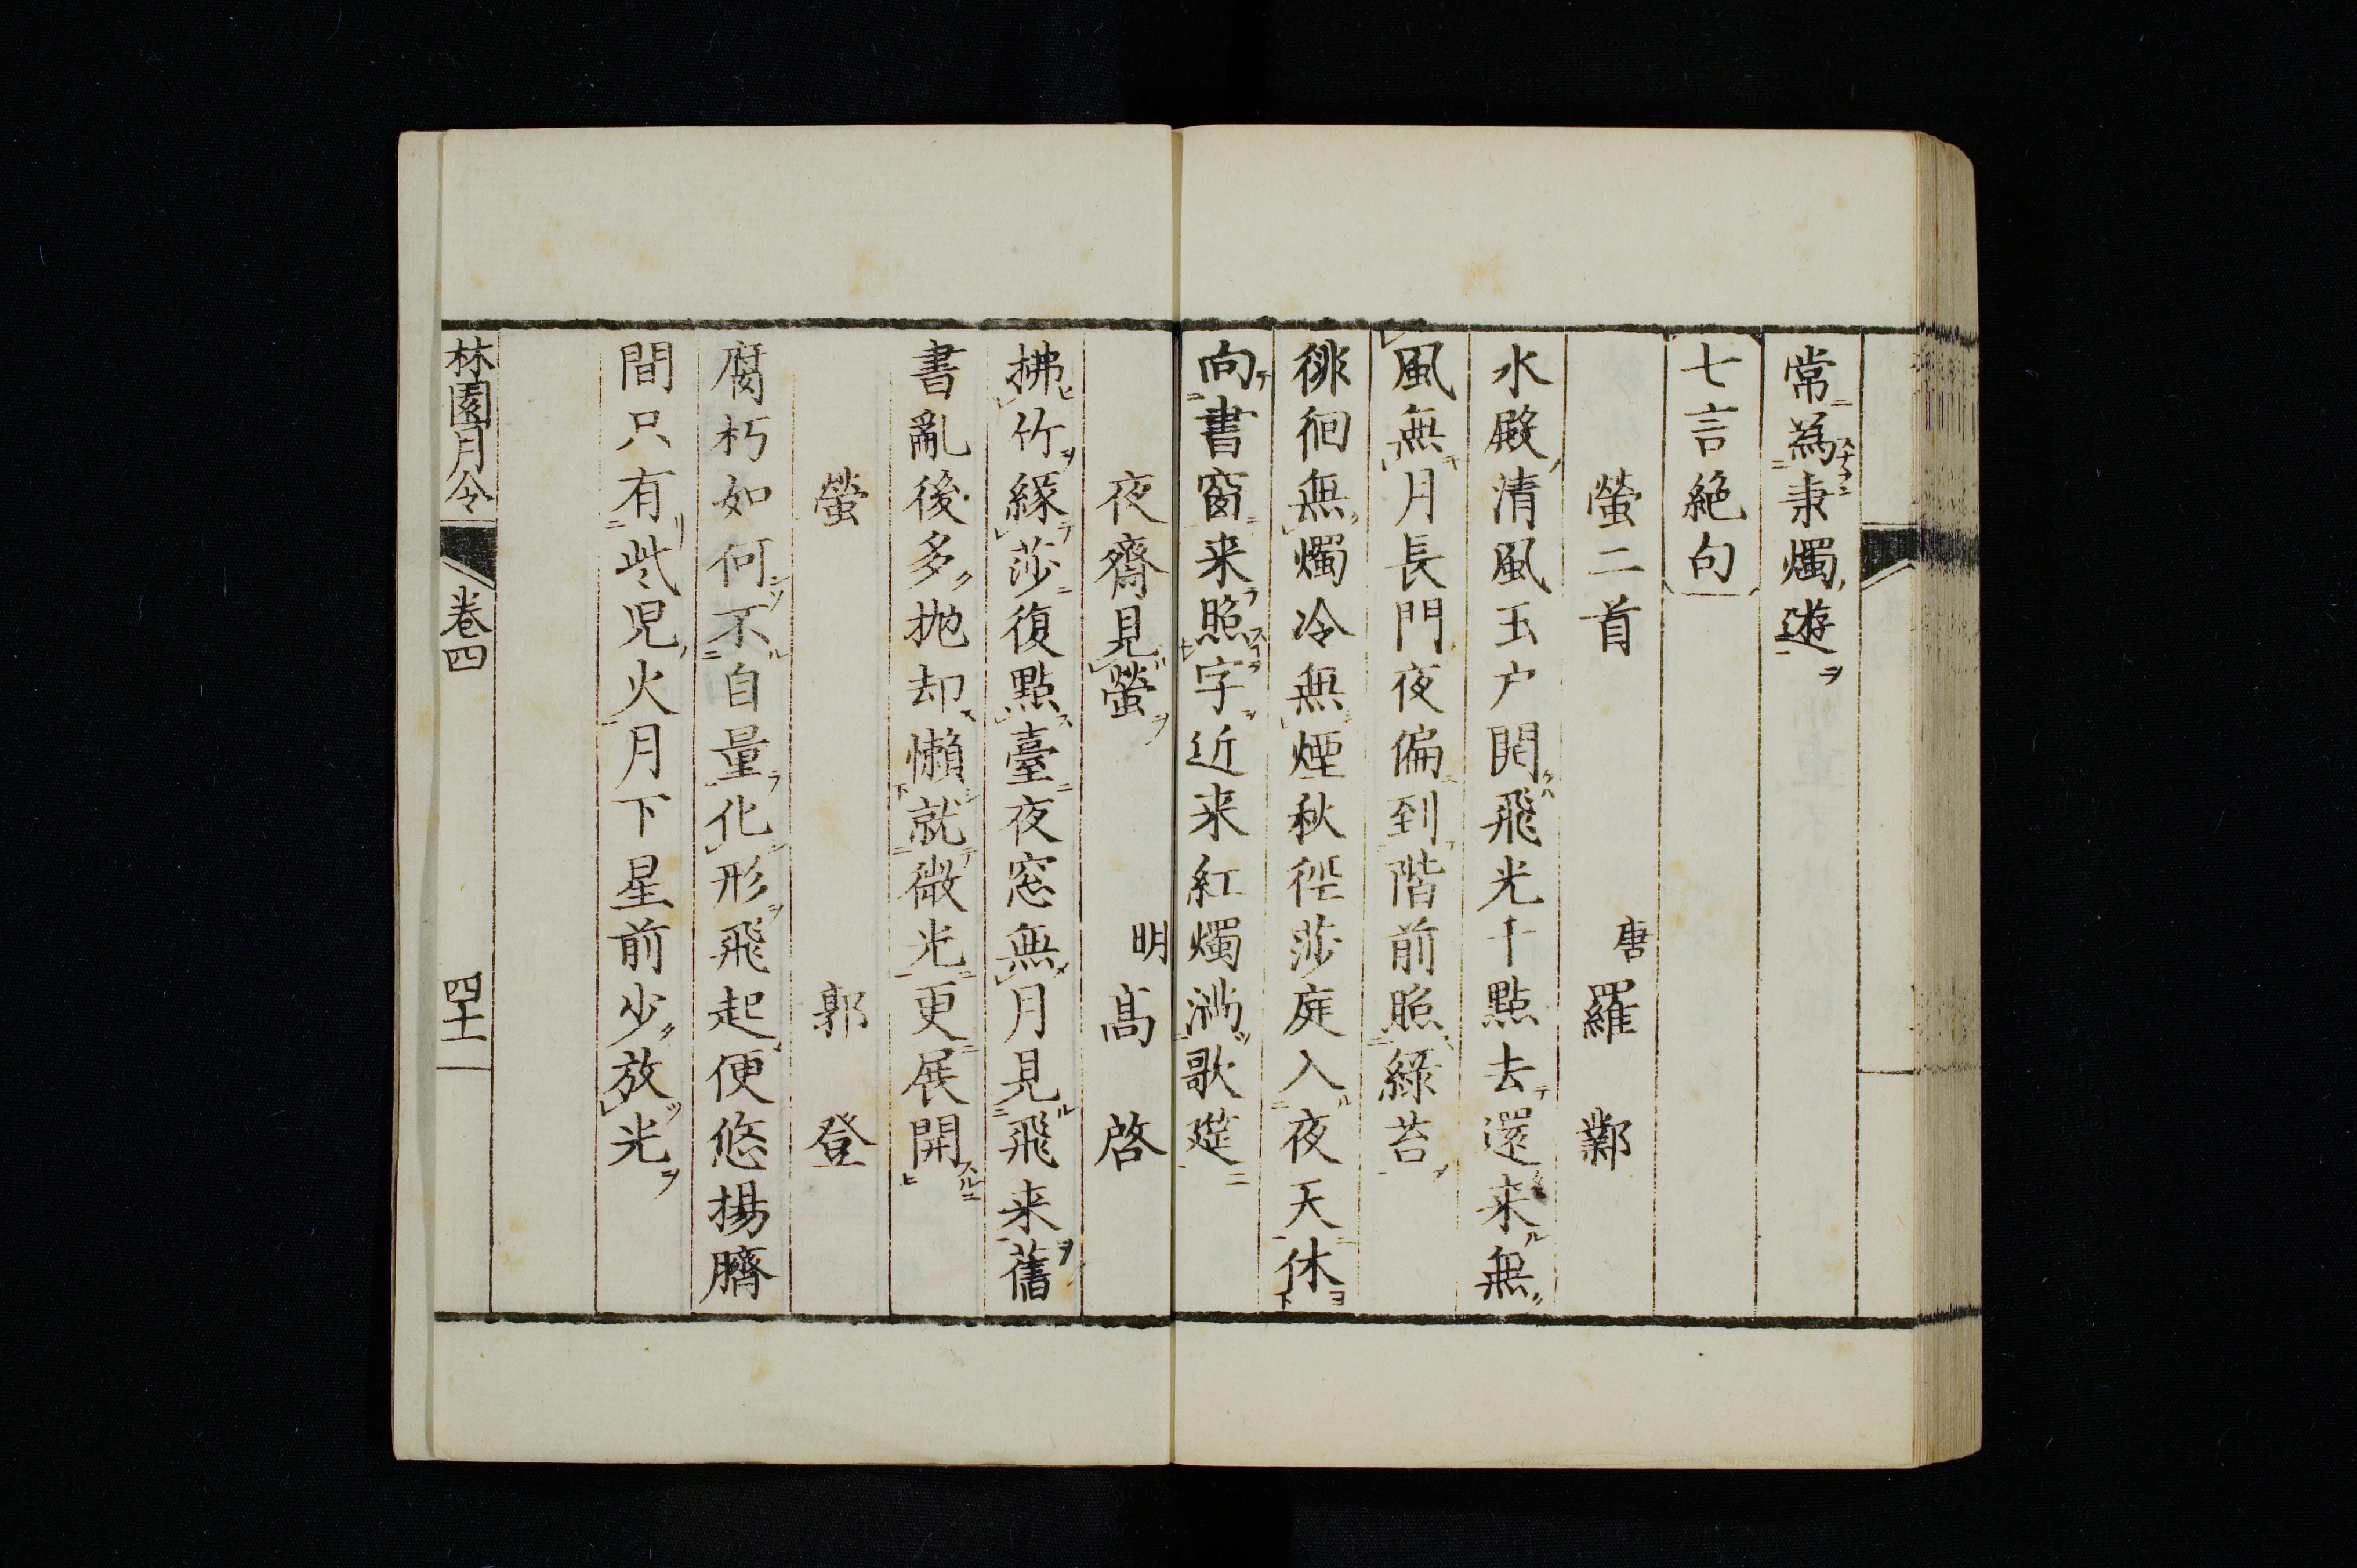 常為秉燭遊
七言絶句
螢二首　唐羅鄴
水殿清風玉户開飛光千點去還来無
風無月長門夜偏到階前照綠苔
徘徊無燭冷無煙秋徑莎庭入夜天休
向書窗来照字近来紅燭滿歌筵
夜齋見螢　明高啓
拂竹緣莎復點臺夜窓無月見飛来舊
書亂後多抛却懶就微光更展開
螢　郭登
腐朽如何不自量化形飛起便悠揚臍
間只有些児火月下星前少放光
林園月令　卷四　四十一